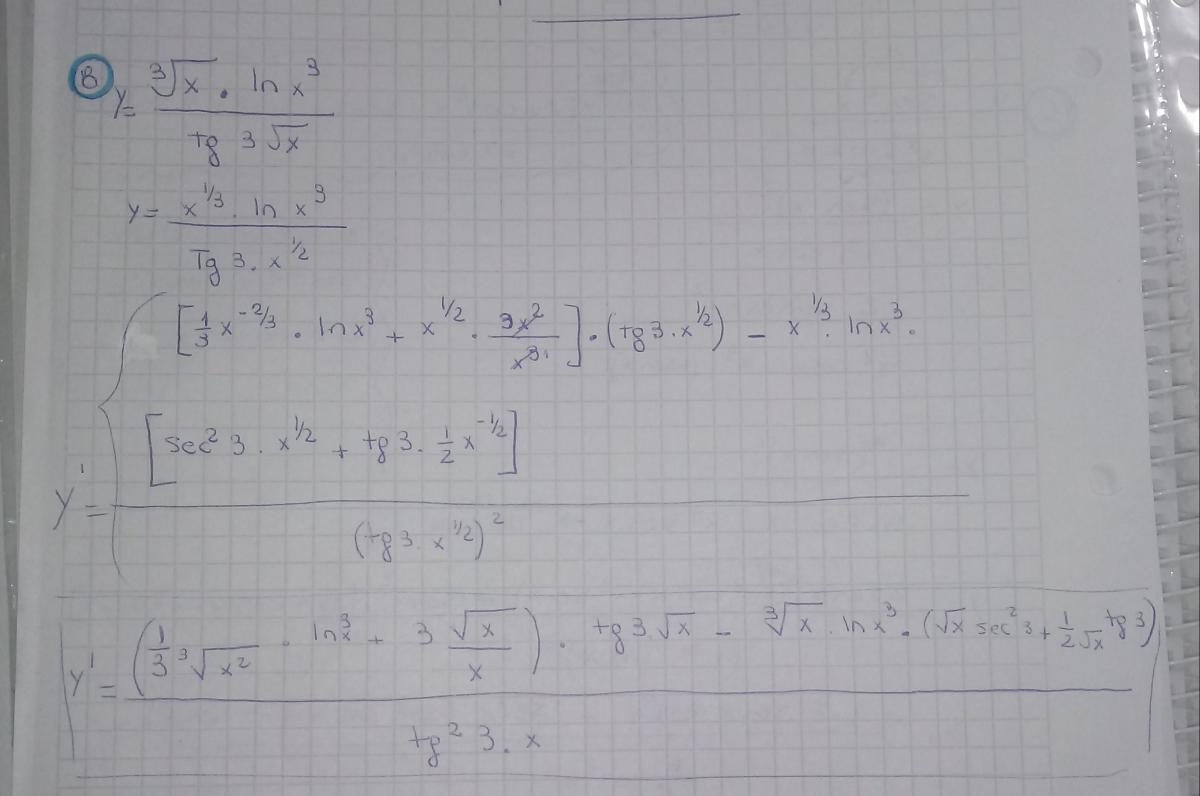 8 y = ∛x · ln x³ / tg 3√x
y = x^(1/3) · ln x³ / Tg 3 · x^(1/2)
[1/3 x^(-2/3) · ln x³ + x^(1/2) · 3x²/x³] · (tg 3 · x^(1/2)) − x^(1/3) · ln x³ ·
[sec² 3 · x^(1/2) + tg 3 · 1/2 x^(-1/2)]
y' =
(tg 3 · x^(1/2))²
y' = (1/3 ∛x² · ln x³ + 3 √x/x) · tg 3√x − ∛x · ln x³ · (√x sec² 3 + 1/2√x tg 3)
tg² 3 · x